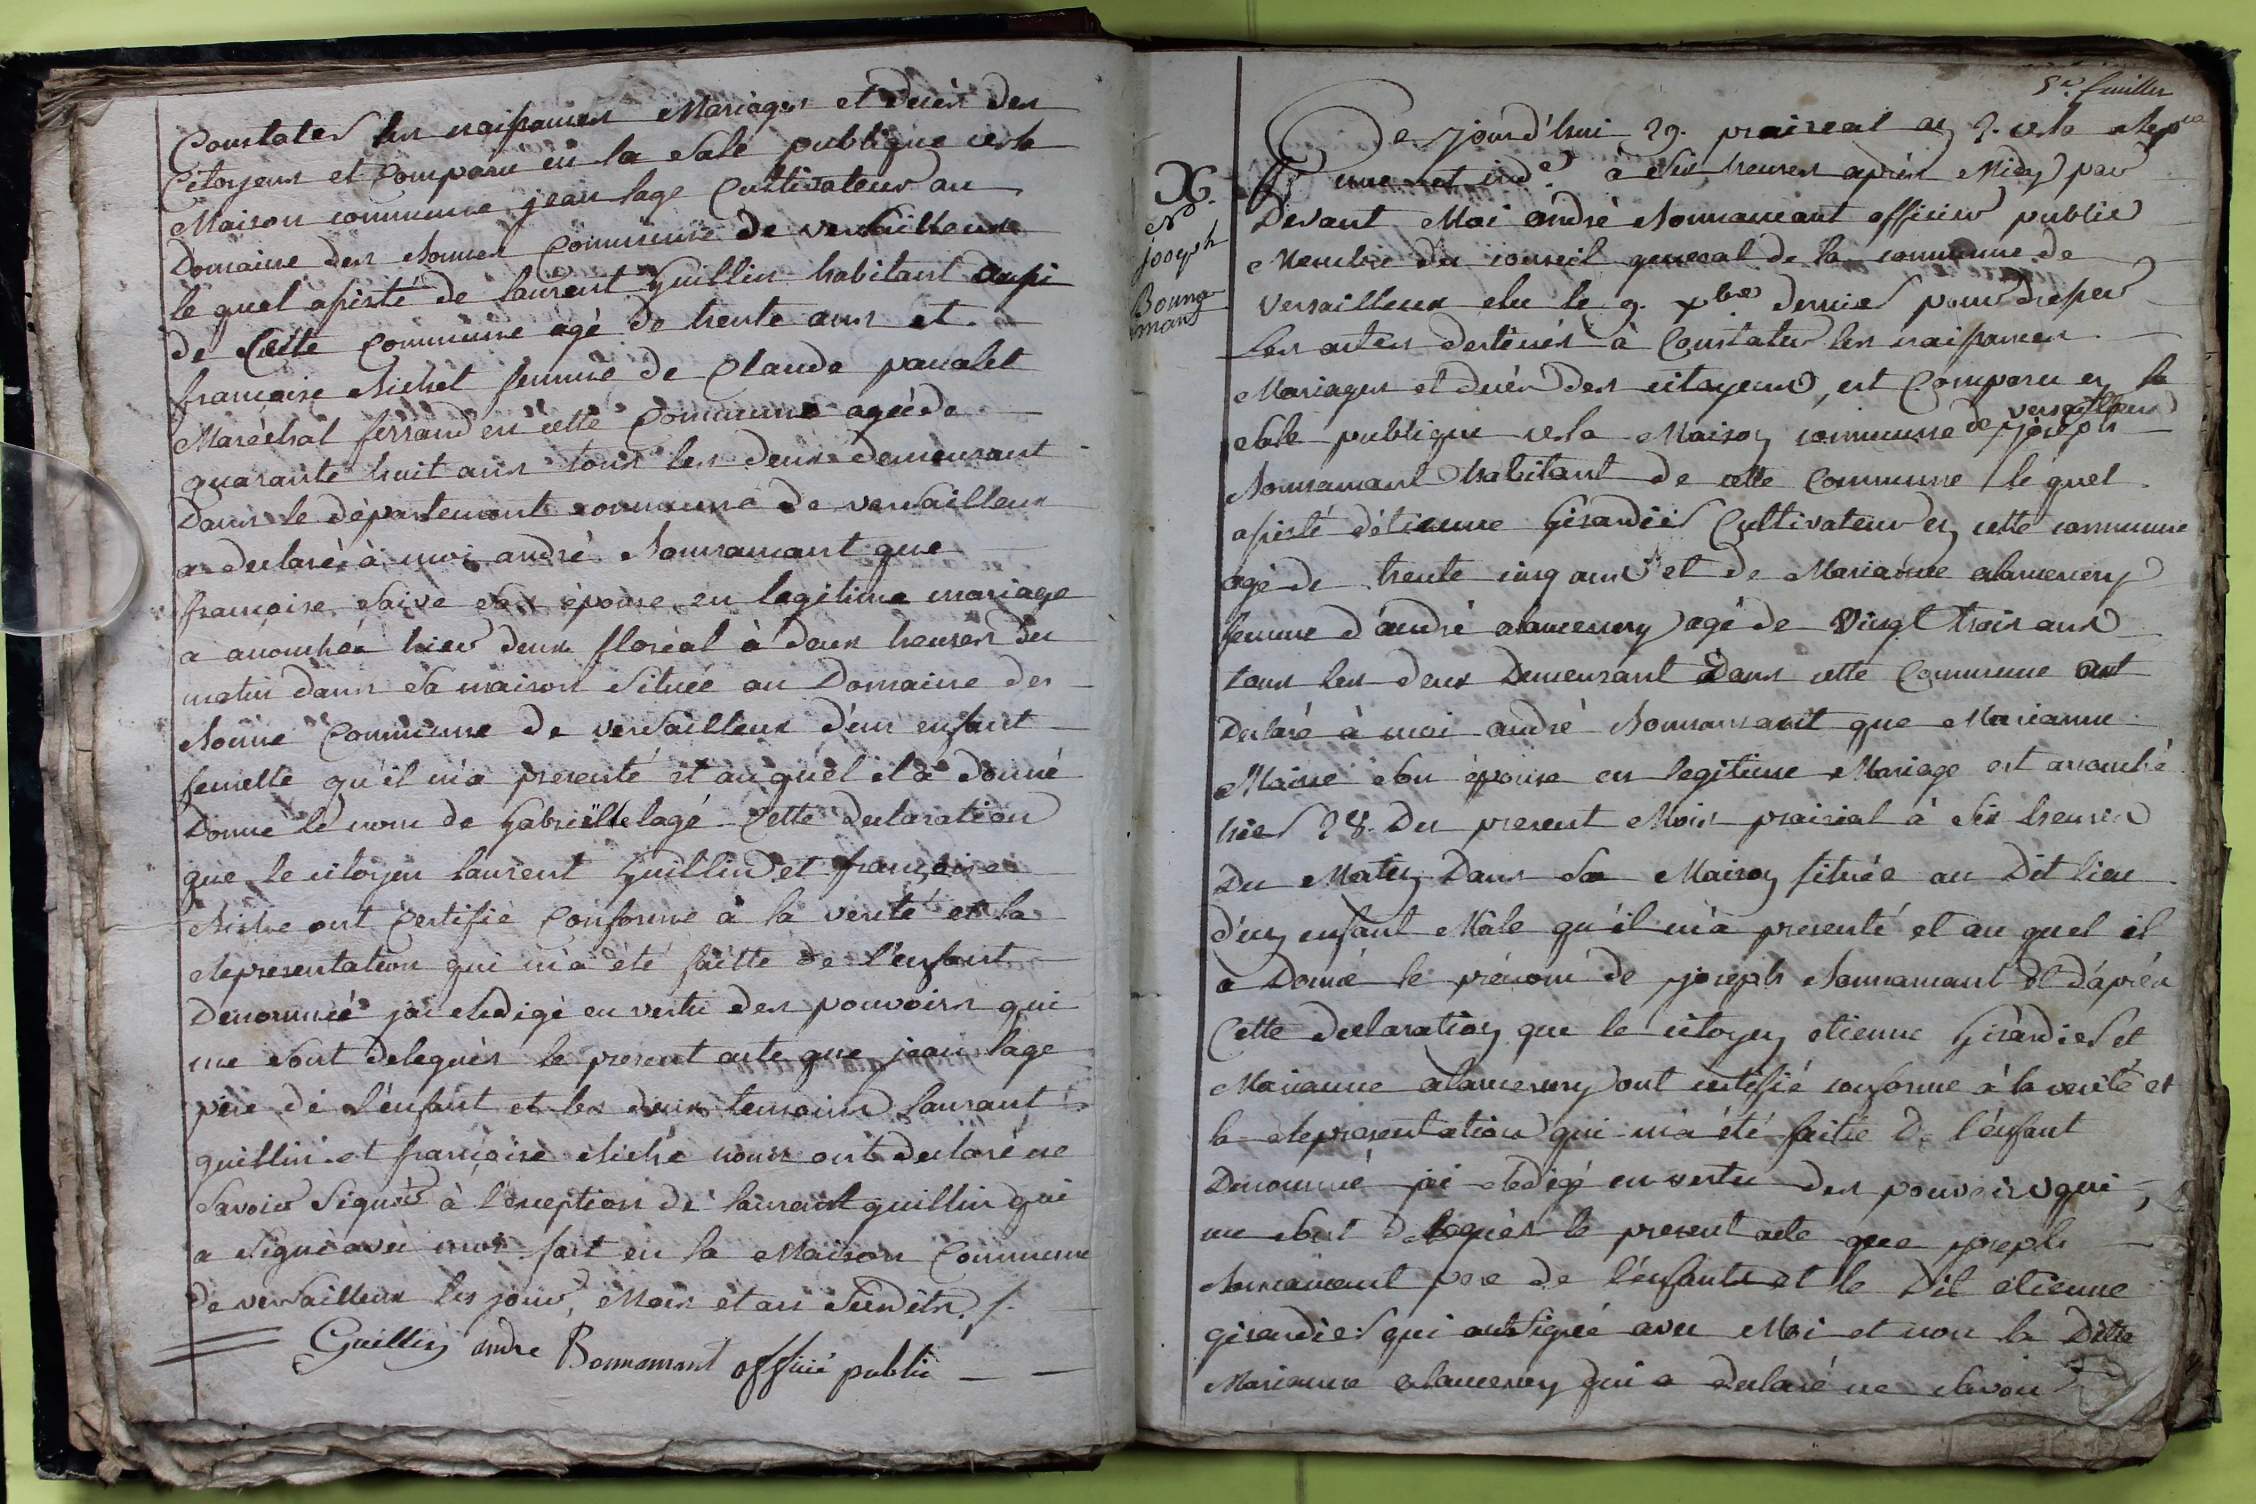 Constater les naissances Mariages et decès des
Citoyens et Comparu en la Sale publique de la
Maison commune jean lage Cultivateur au
Domaine des Nonnes Commune de versailleux
le quel assisté de laurent Guillin habitant aussi
de Cette Commune agé de trente ans et
françoise Michel femme de Claude pavalet
Maréchal ferrand en cette Commune agée de
quarante huit ans tous les deux demeurant
Dans le département commune de versailleux
a declaré à moi andré Bonnamant que
françoise Saive son épouse en legitime mariage
a accouchée hier deux floréal à deux heures du
matin dans sa maison située au Domaine des
Nonne Commune de versailleux d'un enfant
femelle qu'il m'a presenté et au quel il a donné
Donne le nom de Gabrielle lagé Cette declaration
que le citoyen laurent Guillin et françoise
Miche ont Certifié Conforme à la verité et la
representation qui m'a été faitte de l'enfant
Denommé j'ai redigé en vertu des pouvoirs qui
me sont delegués le present acte que jean lage
père de l'enfant et les deux temoins laurant
guillin et françoise Miché nous ont declaré ne
Savoir Signér à l'exception de laurent guillin qui
a Signé avec moi fait en la Maison Commune
de versailleux les jour, Mois et an Susdits ./.
Guillin andre Bonnamant officié public
5e. feuillet
Ce jourd'hui 29. praireal an 2. de la Repque
une et inde à Six heures après Midy par
X.
N
joseph
Bonna
mant
Devant Moi andré Bonnamant officier public
Membre du conseil general de la commune de
Versailleux elu le 9. xbre dernier pour dresser
Les actes destinés à Constater les naissances
Mariages et decès des citoyens, est Comparu en la
Sale publique de la Maison commune de versailleux joseph
Bonnamant habitant de cette Commune le quel
assisté d'étienne Girardier Cultivateur en cette commune
agé de trente cinq ans et de Marianne
femme d'andré agé de Vingt trois ans
tous les deux Demeurant Dans cette Commune ont
Declaré à moi andré Bonnamant que Marianne
son épouse en legitime Mariage est accouché
hier 28. Du present Mois prairial à Six heures
Du Matin Dans Sa Maison située au Dit lieu
d'un enfant Mâle qu'il m'a presenté et au quel il
a Donné le prénom de joseph Bonnamant et d'après
Cette declaration que le citoyen etienne Girardier et
Marianne ont certifié conforme à la verité et
la representation qui m'a été faitte De l'enfant
Denommé j'ai redigé en vertu des pouvoirs qui
me sont Delegués le present acte que joseph
Bonnamant pere de l'enfant et le Dit etienne
girardier qui ont Signé avec Moi et non la Ditte
Marianne qui a Declaré ne Savoir